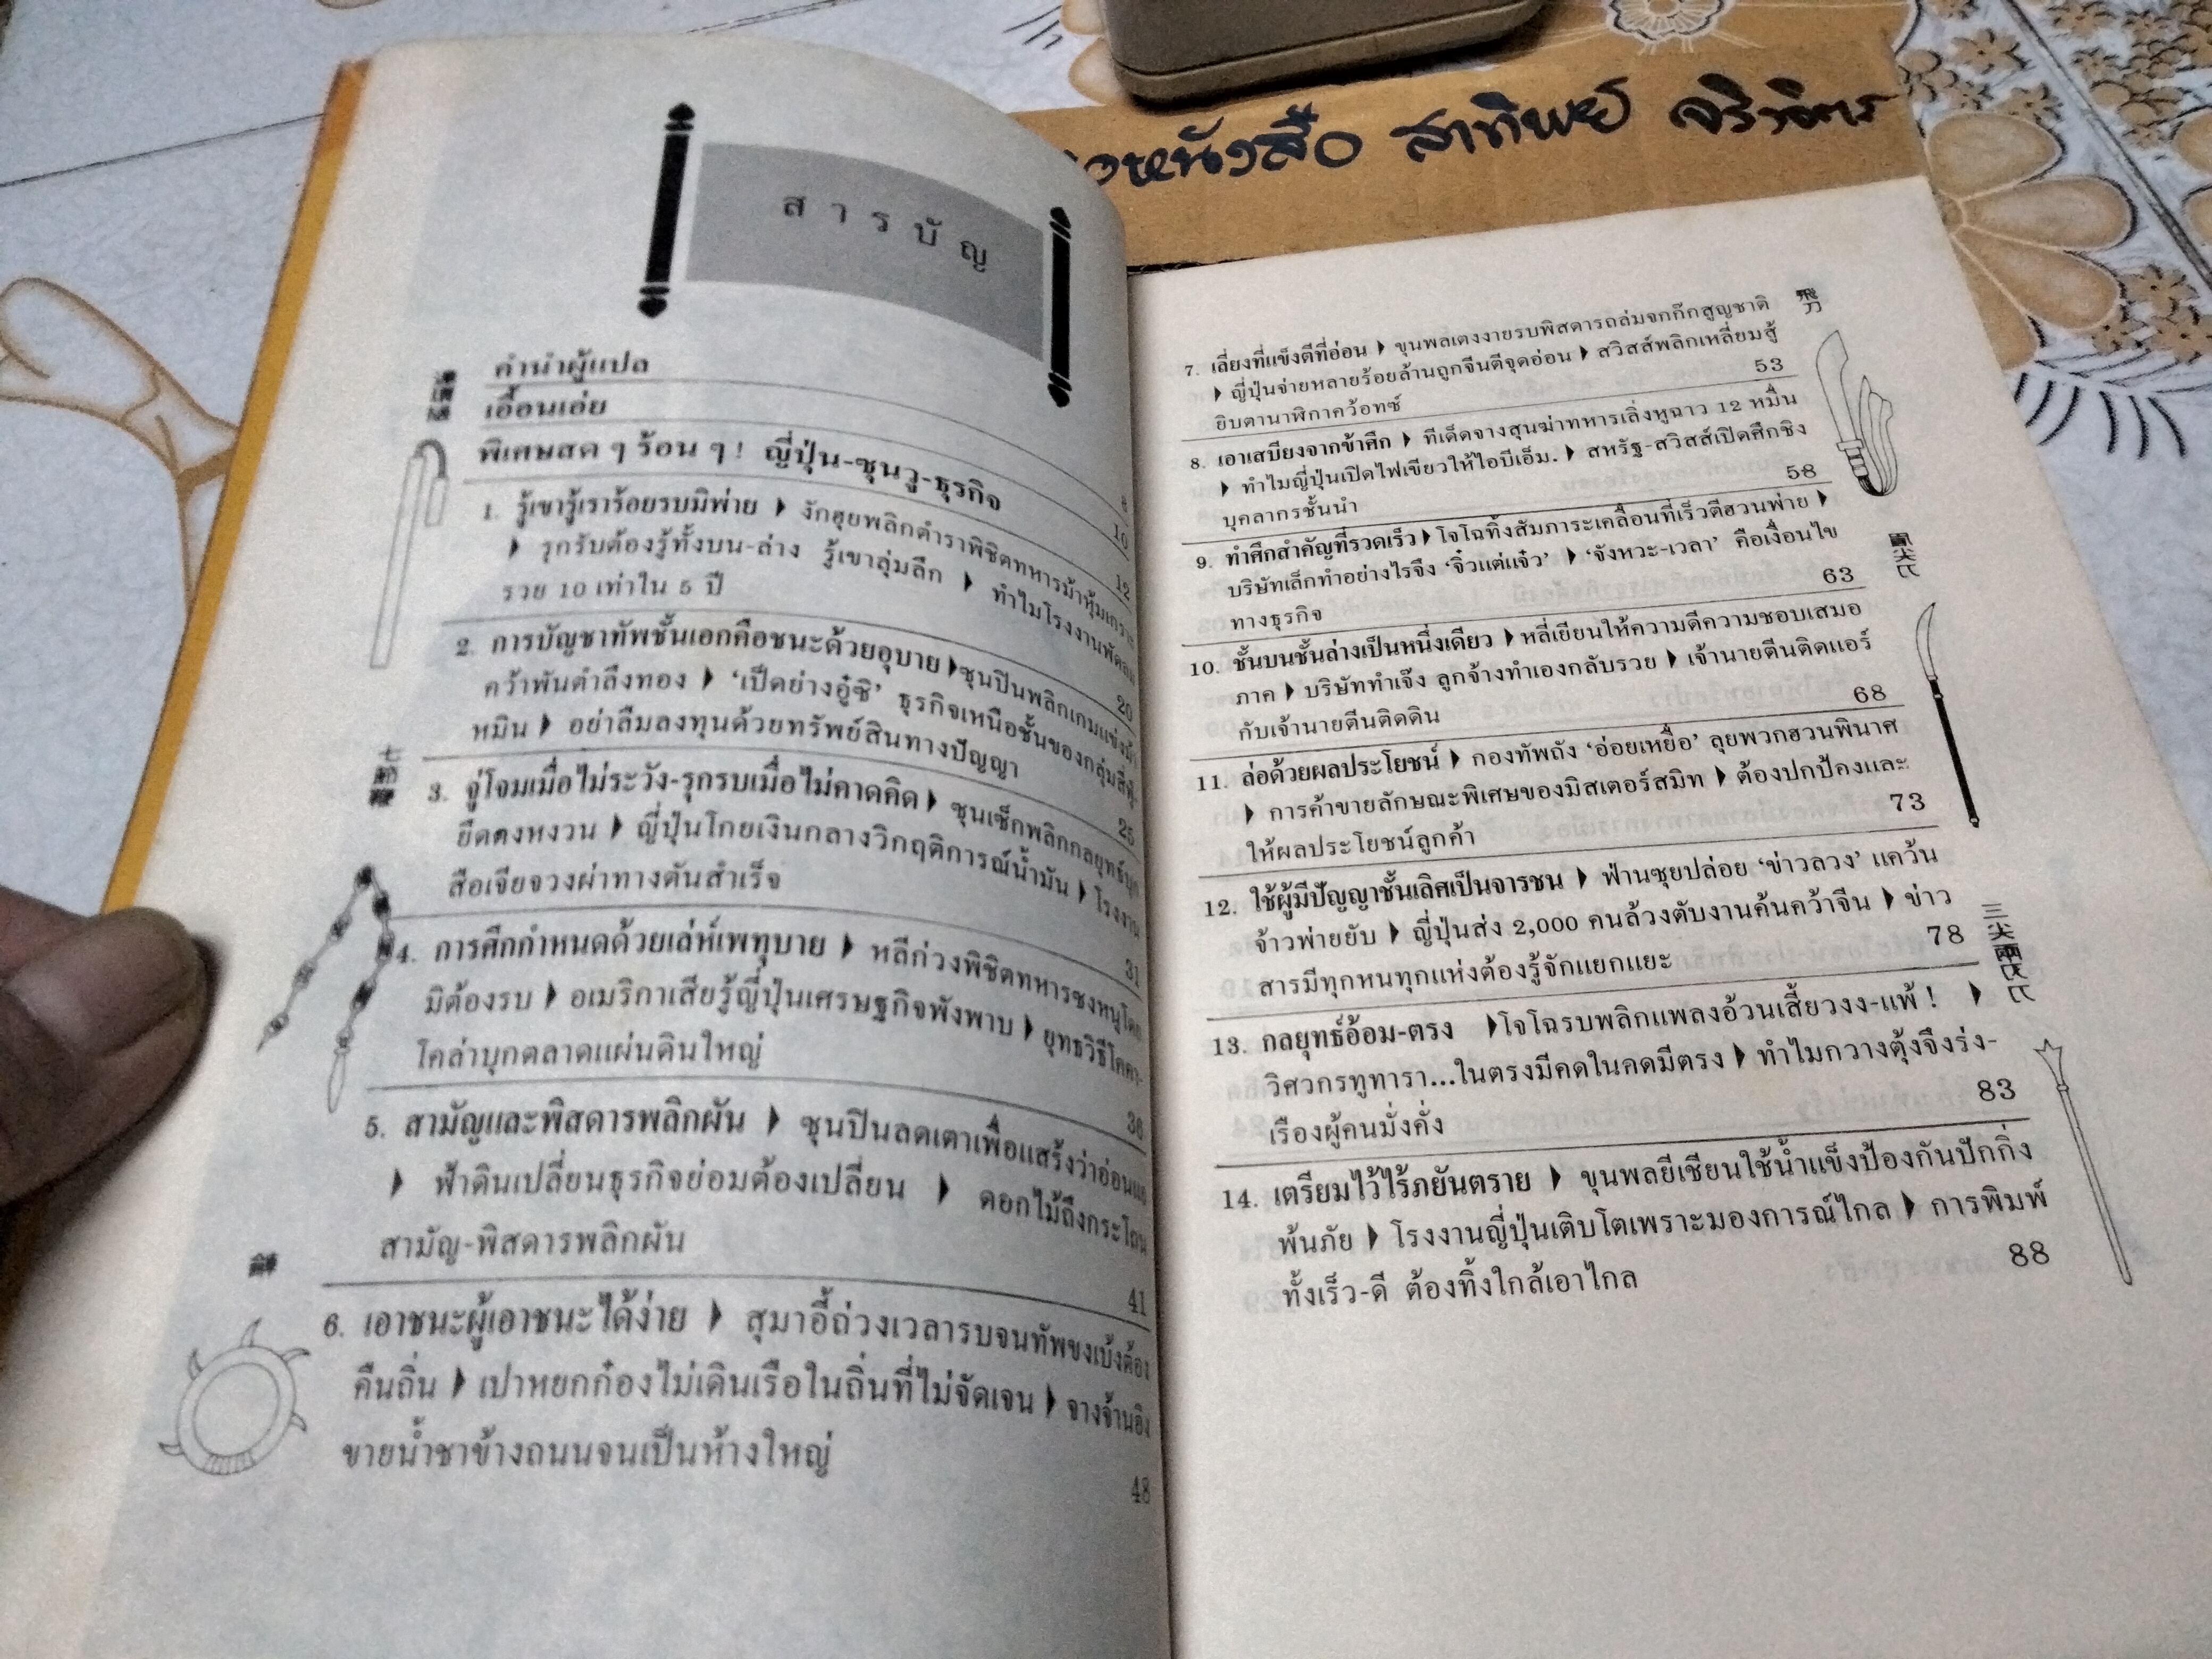 หนังสือ สาทิพย์ จริงจิตร
สารบัญ
คำนำผู้แปล 8
เอื้อนเอ่ย 10
พิเศษสด ๆ ร้อน ๆ! ญี่ปุ่น-ซุนวู-ธุรกิจ 12
1. รู้เขารู้เราร้อยรบมิพ่าย ▶ งักฮุยพลิกตำราพิชิตทหารม้าหุ้มเกราะ
▶ รุกรับต้องรู้ทั้งบน-ล่าง รู้เขาลุ่มลึก ▶ ทำไมโรงงานพัดลม
รวย 10 เท่าใน 5 ปี 20
2. การบัญชาทัพชั้นเอกคือชนะด้วยอุบาย ▶ ซุนปินพลิกเกมแข่งม้า
คว้าพันตำลึงทอง ▶ 'เป็ดย่างอู๋ซิ' ธุรกิจเหนือชั้นของกลุ่มสี่ตู้-
หมิน ▶ อย่าลืมลงทุนด้วยทรัพย์สินทางปัญญา 25
3. จู่โจมเมื่อไม่ระวัง-รุกรบเมื่อไม่คาดคิด ▶ ซุนเซ็กพลิกกลยุทธ์บุก
ยึดตงหงวน ▶ ญี่ปุ่นโกยเงินกลางวิกฤติการณ์น้ำมัน ▶ โรงงาน
สือเจียจวงผ่าทางตันสำเร็จ 31
4. การศึกกำหนดด้วยเล่ห์เพทุบาย ▶ หลีก่วงพิชิตทหารซงหนูโดย
มิต้องรบ ▶ อเมริกาเสียรู้ญี่ปุ่นเศรษฐกิจพังพาบ ▶ ยุทธวิธีโคคา-
โคล่าบุกตลาดแผ่นดินใหญ่ 36
5. สามัญและพิสดารพลิกผัน ▶ ซุนปินลดเตาเพื่อแสร้งว่าอ่อนแอ
▶ ฟ้าดินเปลี่ยนธุรกิจย่อมต้องเปลี่ยน ▶ ดอกไม้ถึงกระโถน
สามัญ-พิสดารพลิกผัน 41
6. เอาชนะผู้เอาชนะได้ง่าย ▶ สุมาอี้ถ่วงเวลารบจนทัพขงเบ้งต้อง
คืนถิ่น ▶ เปาหยกก๋องไม่เดินเรือในถิ่นที่ไม่จัดเจน ▶ จางจ้านอิง
ขายน้ำชาข้างถนนจนเป็นห้างใหญ่ 48
飛刀
7. เลี่ยงที่แข็งตีที่อ่อน ▶ ขุนพลเตงงายรบพิสดารถล่มจกก๊กสูญชาติ
▶ ญี่ปุ่นจ่ายหลายร้อยล้านถูกจีนตีจุดอ่อน ▶ สวิสส์พลิกเหลี่ยมสู้
ยิบตานาฬิกาคว้อทซ์ 53
8. เอาเสบียงจากข้าศึก ▶ ทีเด็ดจางสุนฆ่าทหารเลิ่งหูฉาว 12 หมื่น
▶ ทำไมญี่ปุ่นเปิดไฟเขียวให้ไอบีเอ็ม. ▶ สหรัฐ-สวิสส์เปิดศึกชิง
บุคลากรชั้นนำ 58
9. ทำศึกสำคัญที่รวดเร็ว ▶ โจโฉทิ้งสัมภาระเคลื่อนที่เร็วตีฮวนพ่าย ▶
บริษัทเล็กทำอย่างไรจึง 'จิ๋วแต่แจ๋ว' ▶ 'จังหวะ-เวลา' คือเงื่อนไข
ทางธุรกิจ 63
10. ชั้นบนชั้นล่างเป็นหนึ่งเดียว ▶ หลี่เยียนให้ความดีความชอบเสมอ
ภาค ▶ บริษัททำเจ๊ง ลูกจ้างทำเองกลับรวย ▶ เจ้านายตีนติดแอร์
กับเจ้านายตีนติดดิน 68
11. ล่อด้วยผลประโยชน์ ▶ กองทัพถัง 'อ่อยเหยื่อ' ลุยพวกฮวนพินาศ
▶ การค้าขายลักษณะพิเศษของมิสเตอร์สมิท ▶ ต้องปกป้คงและ
ให้ผลประโยชน์ลูกค้า 73
12. ใช้ผู้มีปัญญาชั้นเลิศเป็นจารชน ▶ ฟ่านซุยปล่อย 'ข่าวลวง' แคว้น
จ้าวพ่ายยับ ▶ ญี่ปุ่นส่ง 2,000 คนล้วงตับงานค้นคว้าจีน ▶ ข่าว
สารมีทุกหนทุกแห่งต้องรู้จักแยกแยะ 78
三尖兩
13. กลยุทธ์อ้อม-ตรง ▶โจโฉรบพลิกแพลงอ้วนเสี้ยวงง-แพ้! ▶
วิศวกรทูทารา...ในตรงมีคดในคดมีตรง ▶ ทำไมกวางตุ้งจึงรุ่ง-
เรืองผู้คนมั่งคั่ง 83
14. เตรียมไว้ไร้ภยันตราย ▶ ขุนพลยีเซียนใช้น้ำแข็งป้องกันปักกิ่ง
พ้นภัย ▶ โรงงานญี่ปุ่นเติบโตเพราะมองการณ์ไกล ▶ การพิมพ์
ทั้งเร็ว-ดี ต้องทิ้งใกล้เอาไกล 88